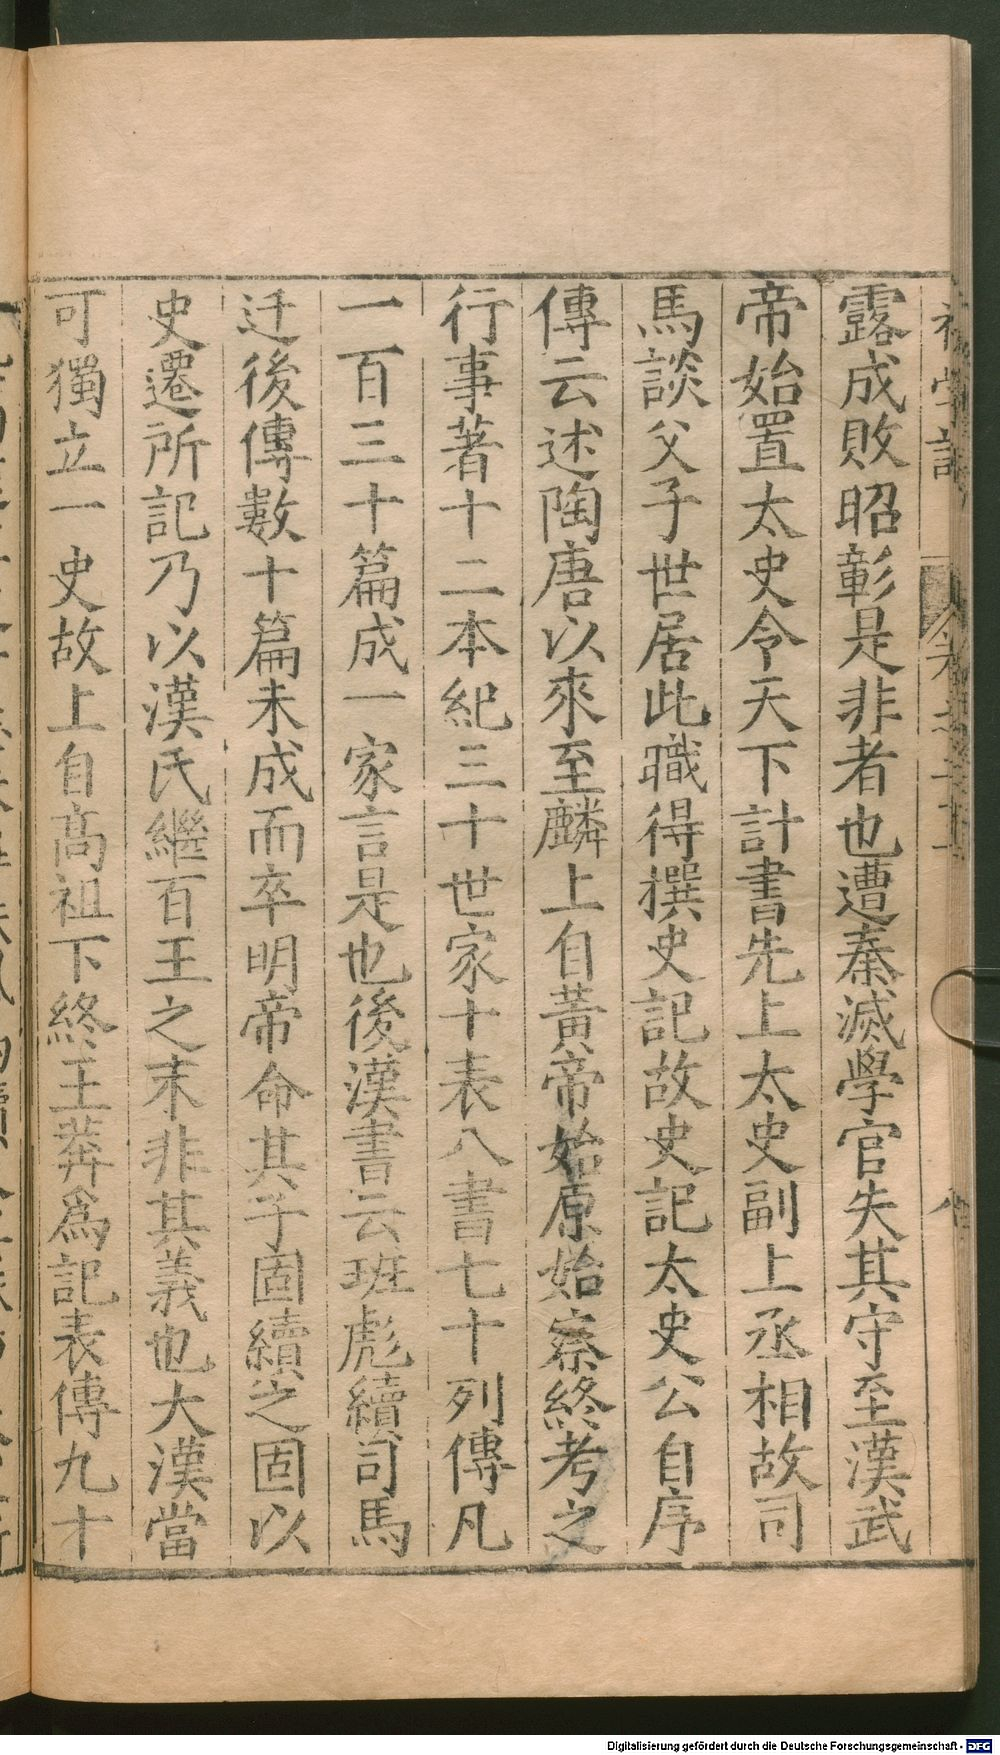 露成敗昭彰是非者也遭秦滅學官失其守至漢武
帝始置太史令天下計書先上太史副上丞相故司
馬談父子世居此職得撰史記故史記太史公自序
傳云述陶唐以來至麟上自黃帝始原始察終考之
行事著十二本紀三十世家十表八書七十列傳凡
一百三十篇成一家言是也後漢書云班彪續司馬
迁後傳數十篇未成而卒明帝命其子固續之固以
史遷所記乃以漢氏繼百王之末非其義也大漢當
可獨立一史故上自高祖下終王莽爲記表傳九十
Digitalisierung gefördert durch die Deutsche Forschungsgemeinschaft - DFG